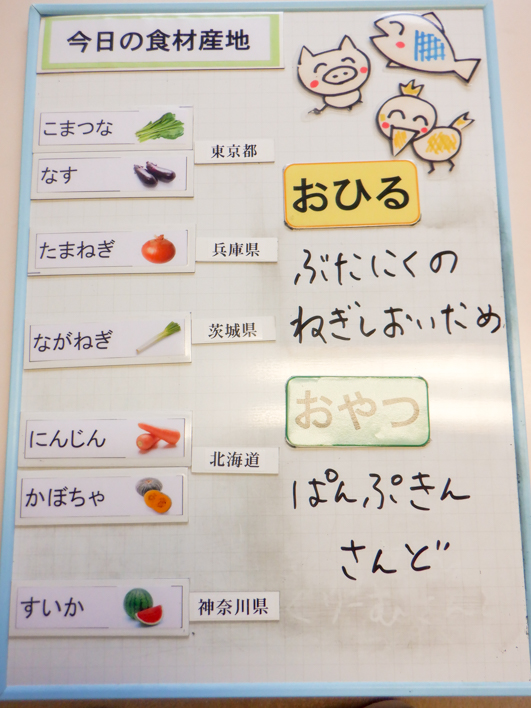 今日の食材産地
こまつな
なす
東京都
たまねぎ
兵庫県
ながねぎ
茨城県
にんじん
かぼちゃ
北海道
すいか
神奈川県
おひる
ぶたにくの
ねぎしおいため
おやつ
ぱんぷきん
さんど